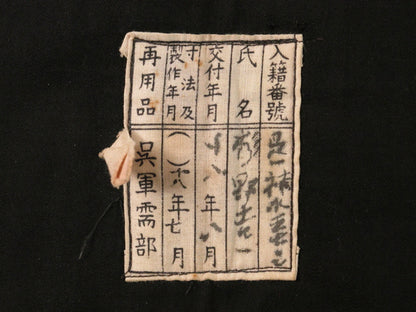 入籍番號
氏名 杉野吉一
交付年月 十八年八月
寸法及製作年月 ( ) 十八年七月
再用品 呉軍需部